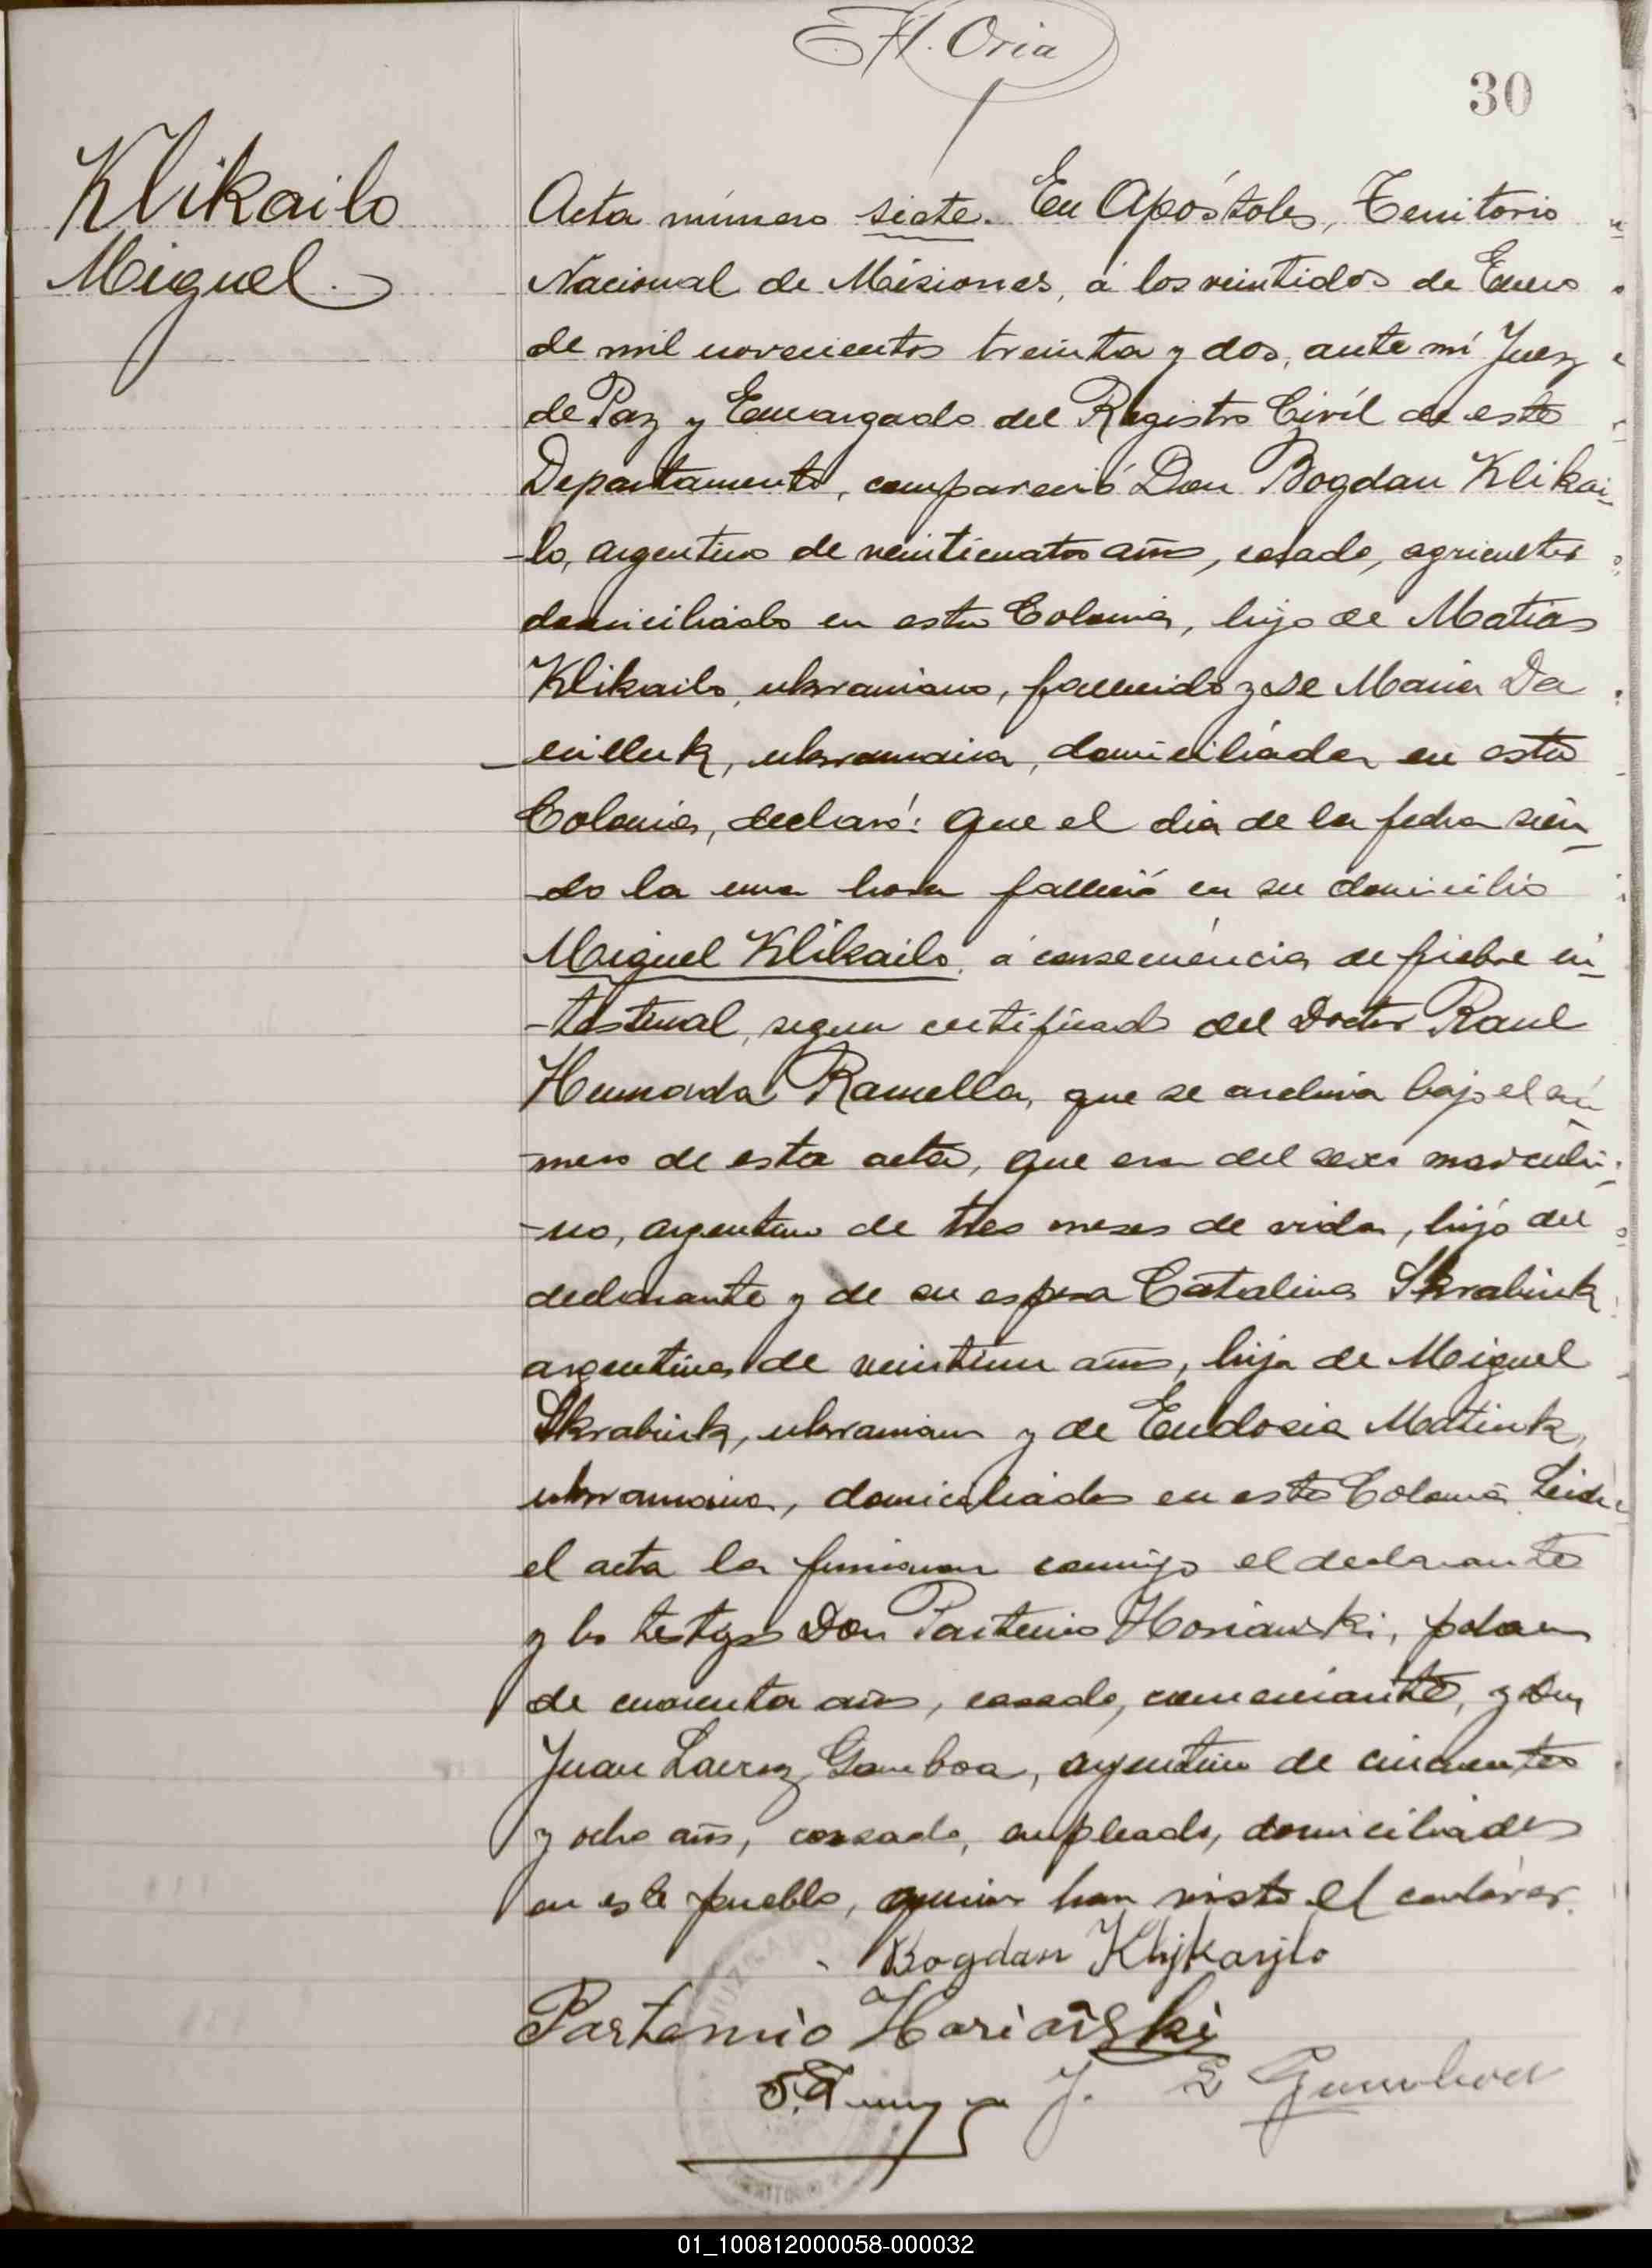 Oria
30
Klikailo
Miguel.
Acta número siete. En Apóstoles, Territorio
Nacional de Misiones, á los veintidos de Enero
de mil novecientos treinta y dos, ante mí Juez
de Paz y Encargado del Registro Civíl de este
Departamento, compareció Don Bogdan Klikai-
-lo, argentino de veinticuatro años, casado, agricultor
domiciliado en esta Colonia, hijo de Matias
Klikailo, ukraniano, fallecido y de Maria Da
-nilluk, ukraniana, domiciliada en esta
Colonia, declaró: que el dia de la fecha sien-
-do la una hora falleció en su domicilio
Miguel Klikailo, á consecuencia de fiebre in-
-testinal, segun certificado del Doctor Raul
Ramella, que se archiva bajo el nú-
-mero de esta acta, que era del sexo masculi-
-no, argentino de tres meses de vida, hijo del
declarante y de su esposa Catalina Skrabiuk
argentina de veintiun años, hija de Miguel
Skrabiuk, ukraniano y de Eudosia Matiuk,
ukraniana, domiciliados en esta Colonia. Leida
el acta la firmaron conmigo el declarante
y los testigos Don Partenio Horiański, polaco
de cuarenta años, casado, comerciante, y Don
Juan Gamboa, argentino de cincuenta
y ocho años, casado, empleado, domiciliados
en este pueblo, quienes han visto el cadáver.
Bogdan Klijkajlo
Partemio Horiański
J. L Gamboa
JUZGADO
01_100812000058-000032